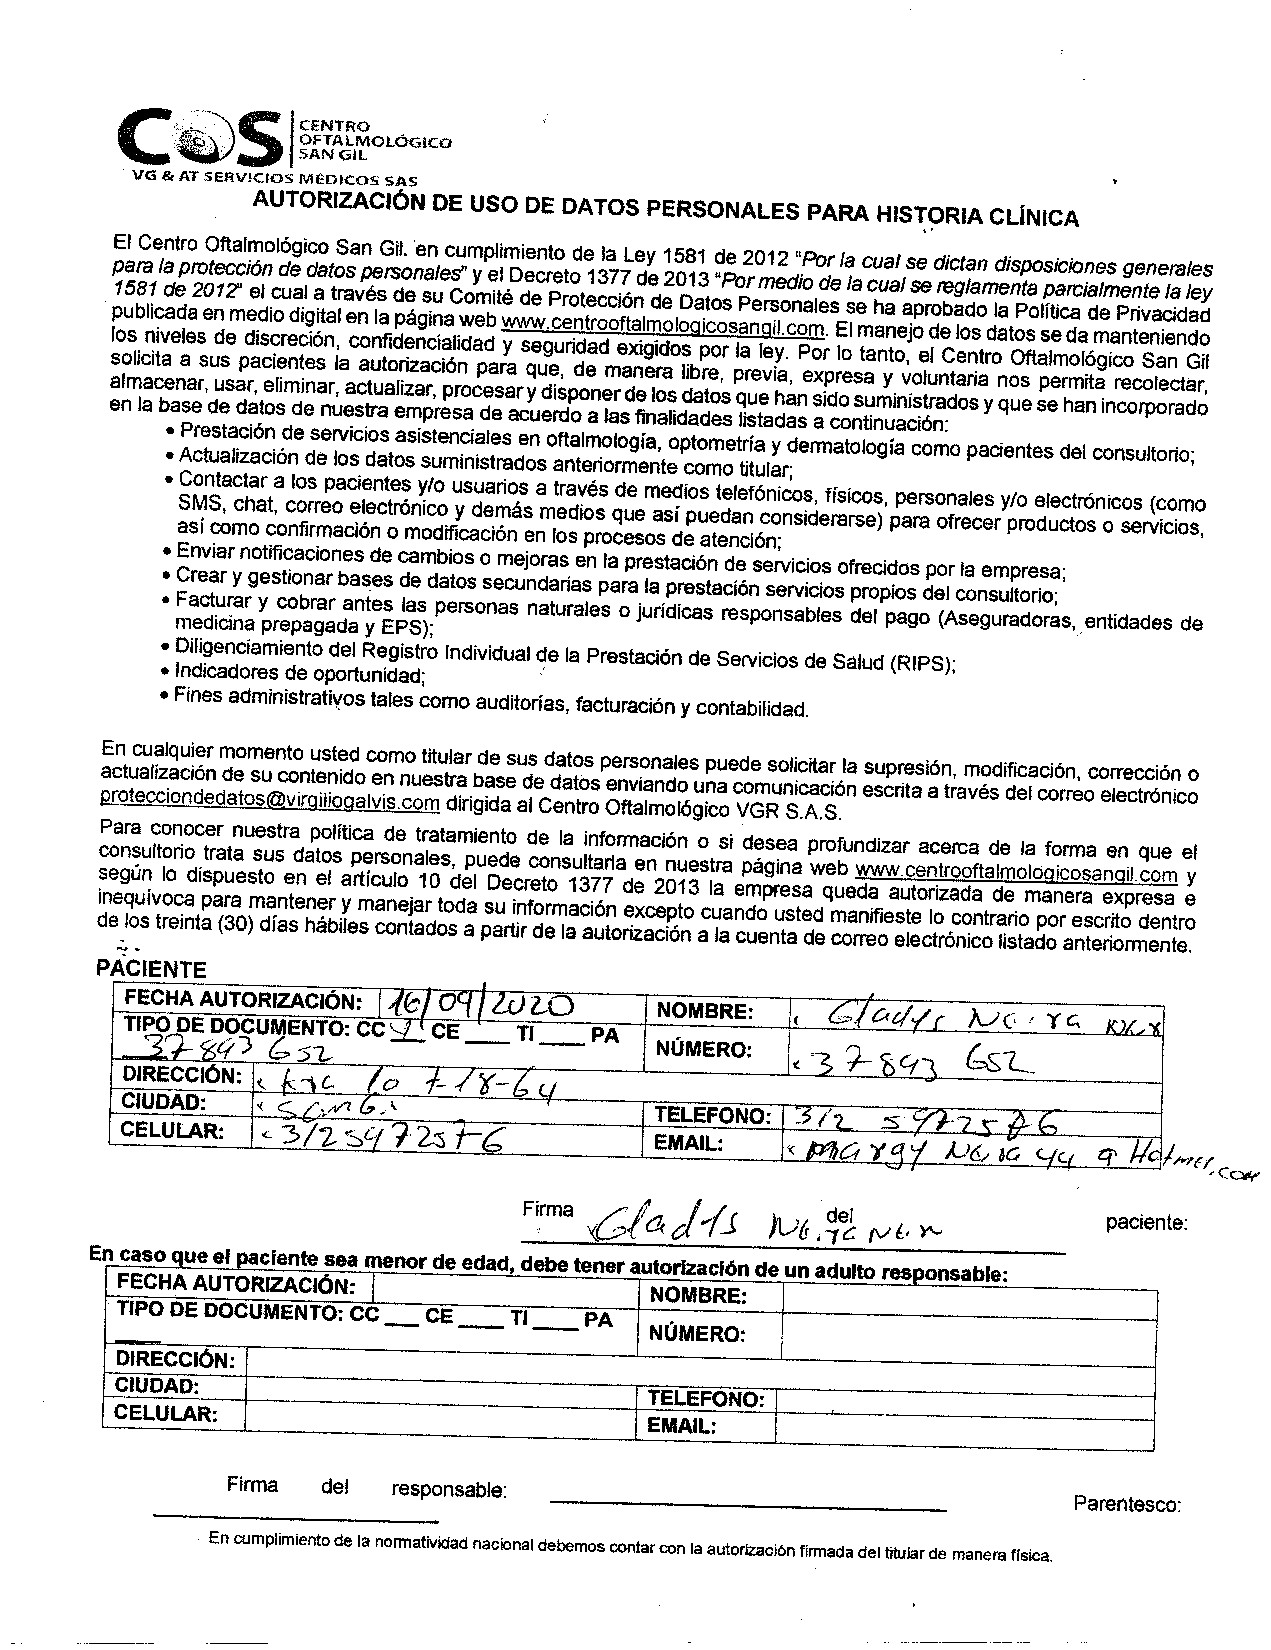 COS CENTRO
OFTALMOLÓGICO
SAN GIL
VG & AT SERVICIOS MÉDICOS SAS
AUTORIZACIÓN DE USO DE DATOS PERSONALES PARA HISTORIA CLÍNICA
El Centro Oftalmológico San Gil. en cumplimiento de la Ley 1581 de 2012 "Por la cual se dictan disposiciones generales
para la protección de datos personales" y el Decreto 1377 de 2013 "Por medio de la cual se reglamenta parcialmente la ley
1581 de 2012" el cual a través de su Comité de Protección de Datos Personales se ha aprobado la Política de Privacidad
publicada en medio digital en la página web www.centrooftalmologicosangil.com. El manejo de los datos se da manteniendo
los niveles de discreción, confidencialidad y seguridad exigidos por la ley. Por lo tanto, el Centro Oftalmológico San Gil
solicita a sus pacientes la autorización para que, de manera libre, previa, expresa y voluntaria nos permita recolectar,
almacenar, usar, eliminar, actualizar, procesar y disponer de los datos que han sido suministrados y que se han incorporado
en la base de datos de nuestra empresa de acuerdo a las finalidades listadas a continuación:
• Prestación de servicios asistenciales en oftalmología, optometría y dermatología como pacientes del consultorio;
• Actualización de los datos suministrados anteriormente como titular;
• Contactar a los pacientes y/o usuarios a través de medios telefónicos, físicos, personales y/o electrónicos (como
SMS, chat, correo electrónico y demás medios que así puedan considerarse) para ofrecer productos o servicios,
así como confirmación o modificación en los procesos de atención;
• Enviar notificaciones de cambios o mejoras en la prestación de servicios ofrecidos por la empresa;
• Crear y gestionar bases de datos secundarias para la prestación servicios propios del consultorio;
• Facturar y cobrar antes las personas naturales o jurídicas responsables del pago (Aseguradoras, entidades de
medicina prepagada y EPS);
• Diligenciamiento del Registro Individual de la Prestación de Servicios de Salud (RIPS);
• Indicadores de oportunidad;
• Fines administrativos tales como auditorías, facturación y contabilidad.
En cualquier momento usted como titular de sus datos personales puede solicitar la supresión, modificación, corrección o
actualización de su contenido en nuestra base de datos enviando una comunicación escrita a través del correo electrónico
protecciondedatos@virgiliogalvis.com dirigida al Centro Oftalmológico VGR S.A.S.
Para conocer nuestra política de tratamiento de la información o si desea profundizar acerca de la forma en que el
consultorio trata sus datos personales, puede consultarla en nuestra página web www.centrooftalmologicosangil.com y
según lo dispuesto en el artículo 10 del Decreto 1377 de 2013 la empresa queda autorizada de manera expresa e
inequívoca para mantener y manejar toda su información excepto cuando usted manifieste lo contrario por escrito dentro
de los treinta (30) días hábiles contados a partir de la autorización a la cuenta de correo electrónico listado anteriormente.
PACIENTE
FECHA AUTORIZACIÓN: 16/09/2020 NOMBRE: Gladys
TIPO DE DOCUMENTO: CC ___ CE ___ TI ___ PA
37893652 NÚMERO: 37893 652
DIRECCIÓN: 10 #18-64
CIUDAD: TELEFONO: 312 5972576
CELULAR: 3125972576 EMAIL:
Firma del paciente:
Gladis
En caso que el paciente sea menor de edad, debe tener autorización de un adulto responsable:
FECHA AUTORIZACIÓN: NOMBRE:
TIPO DE DOCUMENTO: CC ___ CE ____ TI ____ PA
____ NÚMERO:
DIRECCIÓN:
CIUDAD: TELEFONO:
CELULAR: EMAIL:
Firma del responsable: Parentesco:
En cumplimiento de la normatividad nacional debemos contar con la autorización firmada del titular de manera física.